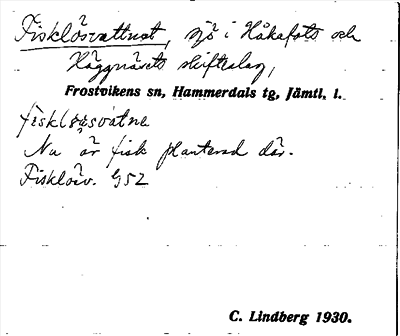 Fisklösvattnet, sjö i Håkafots och
Häggnäsets skifteslag,
Frostvikens sn, Hammerdals tg, Jämtl. l.
fiskløsvatne
Nu är fisk planterad där.
Fisklösv. G52
C. Lindberg 1930.